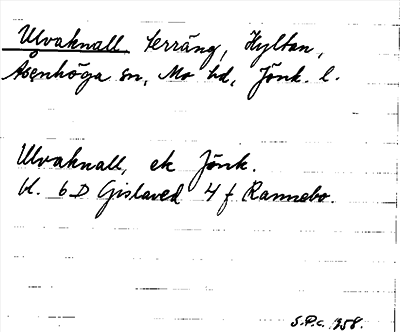 Ulvaknall terräng, Hyltan,
Åsenhöga sn, Mo hd, Jönk. l.
Ulvaknall, ek Jönk.
bl. 6 D Gislaved 4 f Rannebo.
S.P.c. 1958.